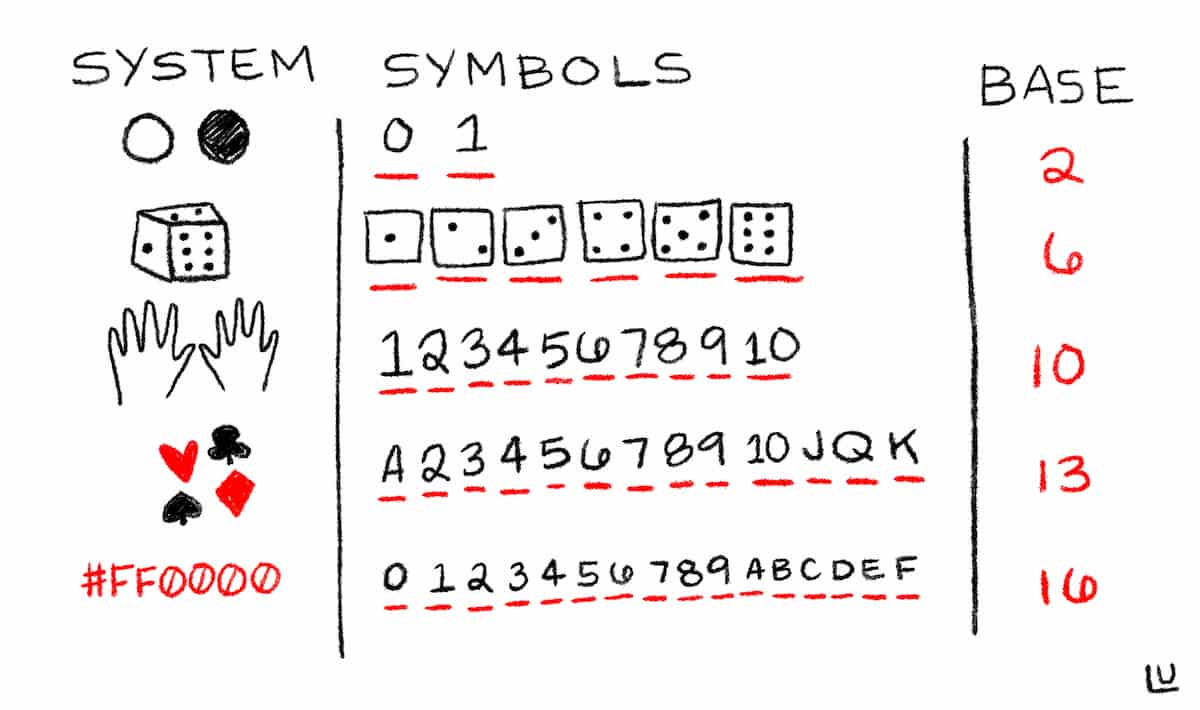 SYSTEM SYMBOLS BASE
0 1 2
6
1 2 3 4 5 6 7 8 9 10 10
A 2 3 4 5 6 7 8 9 10 J Q K 13
#FF0000 0 1 2 3 4 5 6 7 8 9 A B C D E F 16
LU